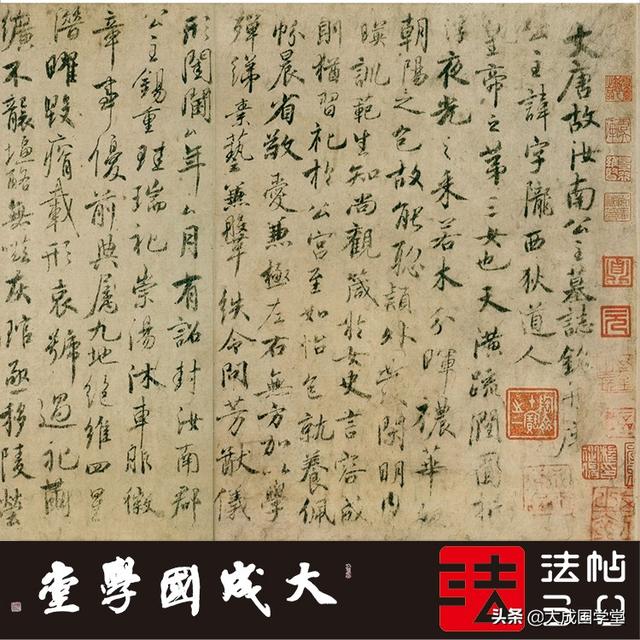 大唐故汝南公主墓誌銘并序
公主諱字隴西狄道人
皇帝之第三女也天潢疏潤圓折
浮夜光之采若木分暉穠華
朝陽之色故能聡穎外發閑明内
暎訓範生知尚觀箴於女史言容成
則猶習礼於公宮至如怡色就養佩
帉晨省敬愛兼極左右無方加以學
殫綈素藝兼鞶紩令問芳猷儀
形閨閫厶年厶月有詔封汝南郡
公主錫重珪瑞礼崇湯沐車服徽
章事優前典屬九地絕維四星
潛曜毀瘠載形哀號過礼繭
纊不襲塩酪無嗞灰琯亟移陵塋
大成國學堂
法
法帖
头条 @大成国学堂